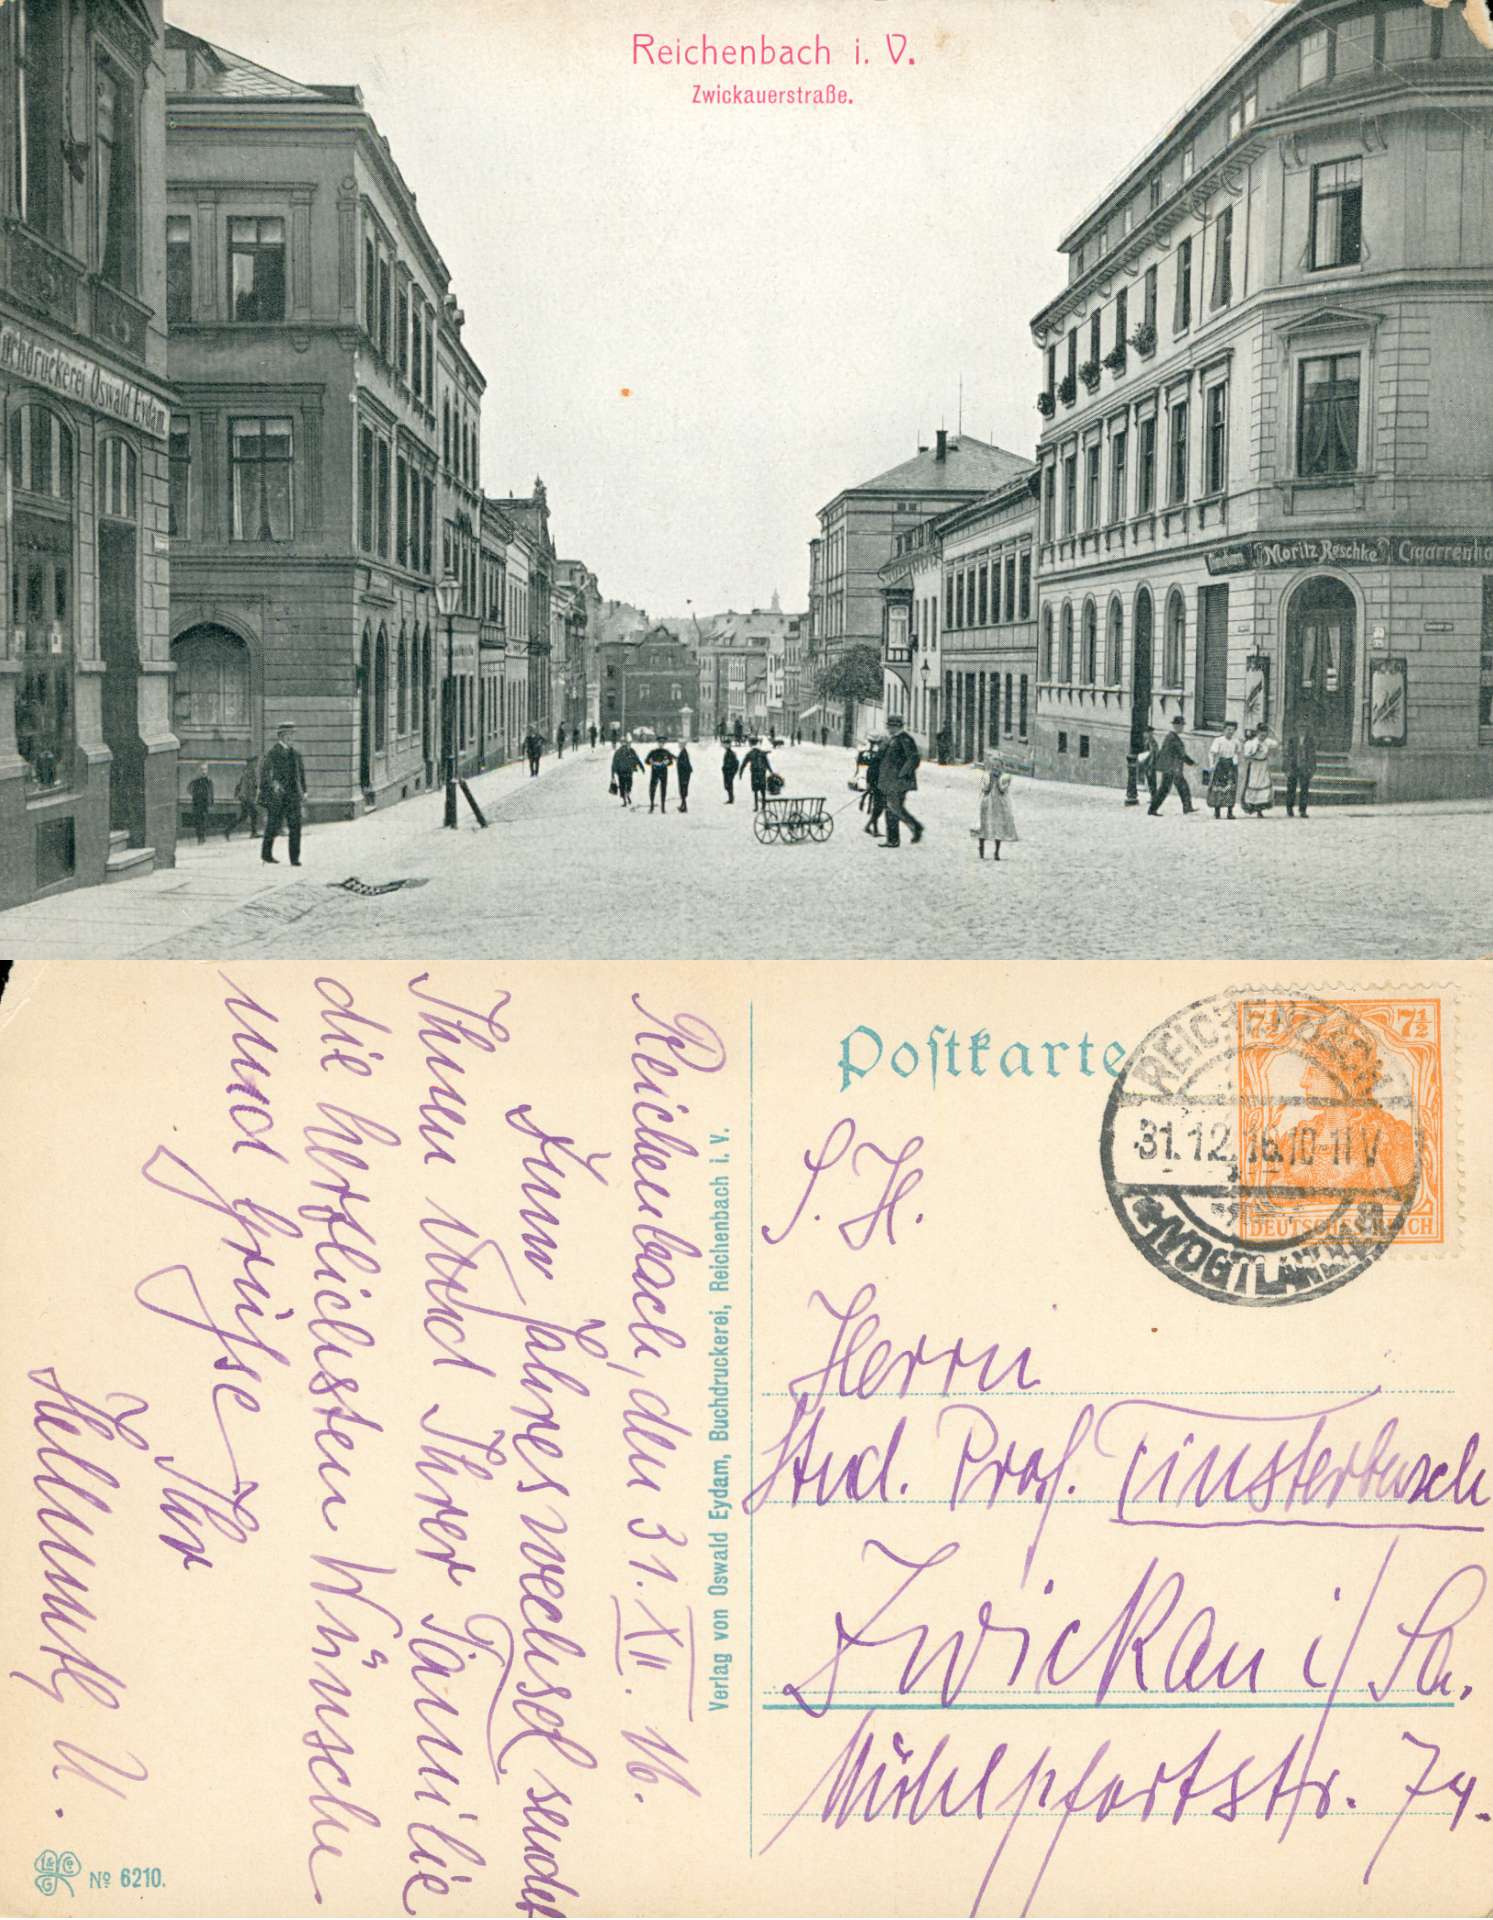 Reichenbach i. V.
Zwickauerstraße.
uchdruckerei Oswald Eydam.
Moritz Reschke Cigarrenha
Postkarte
7½ 7½
DEUTSCHES REICH
REICHENBACH
31.12.16.10-11V
(VOGTLAND)
S. H.
Herrn
Stud. Prof. Finsterbusch
Zwickau i/Sa.
Mühlpfortstr. 74.
Verlag von Oswald Eydam, Buchdruckerei, Reichenbach i. V.
Reichenbach, den 31. XII. 16.
Zum Jahreswechsel sendet
Ihnen und Ihrer Familie
die herzlichsten Wünsche
und Grüße
Ihr
Hellmuth U.
L & Co G
No 6210.